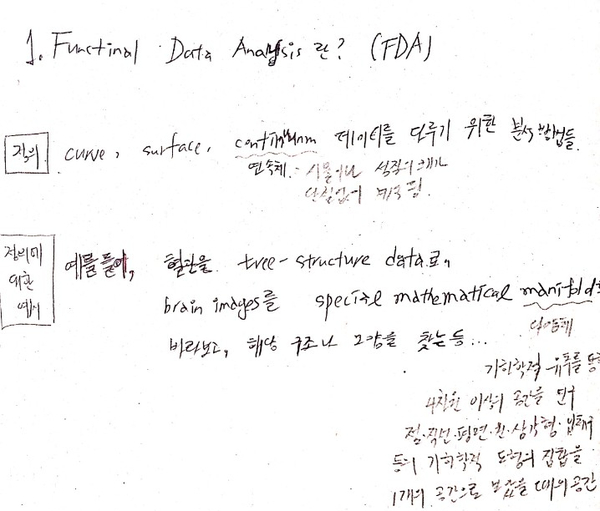 1. Functinal Data Analysis 란? (FDA)
정의. curve, surface, continuum 데이터를 다루기 위한 분석 방법들.
연속체. 사물이나 성질이
단절없이
정의에
의한
예시
예를 들어, 혈관을 tree-structure data로,
brain images를 special mathematical manifold
바라보고, 해당 구조나 값을 찾는 등...
다양체
기하학적 유추를
4차원 이상의 공간을 연구
점·직선·평면·원·삼각형·
등의 기하학적 도형의 집합을
1개의 공간으로 보았을 때의 공간